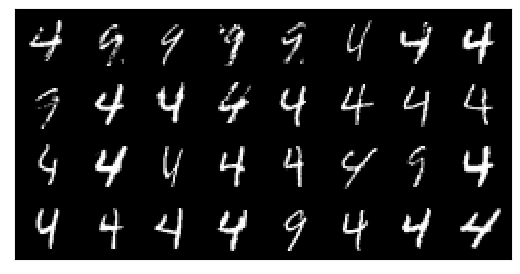 4 9 9 9 9 4 4 4
9 4 4 4 4 4 4 4
4 4 4 4 4 4 9 4
4 4 4 4 9 4 4 4